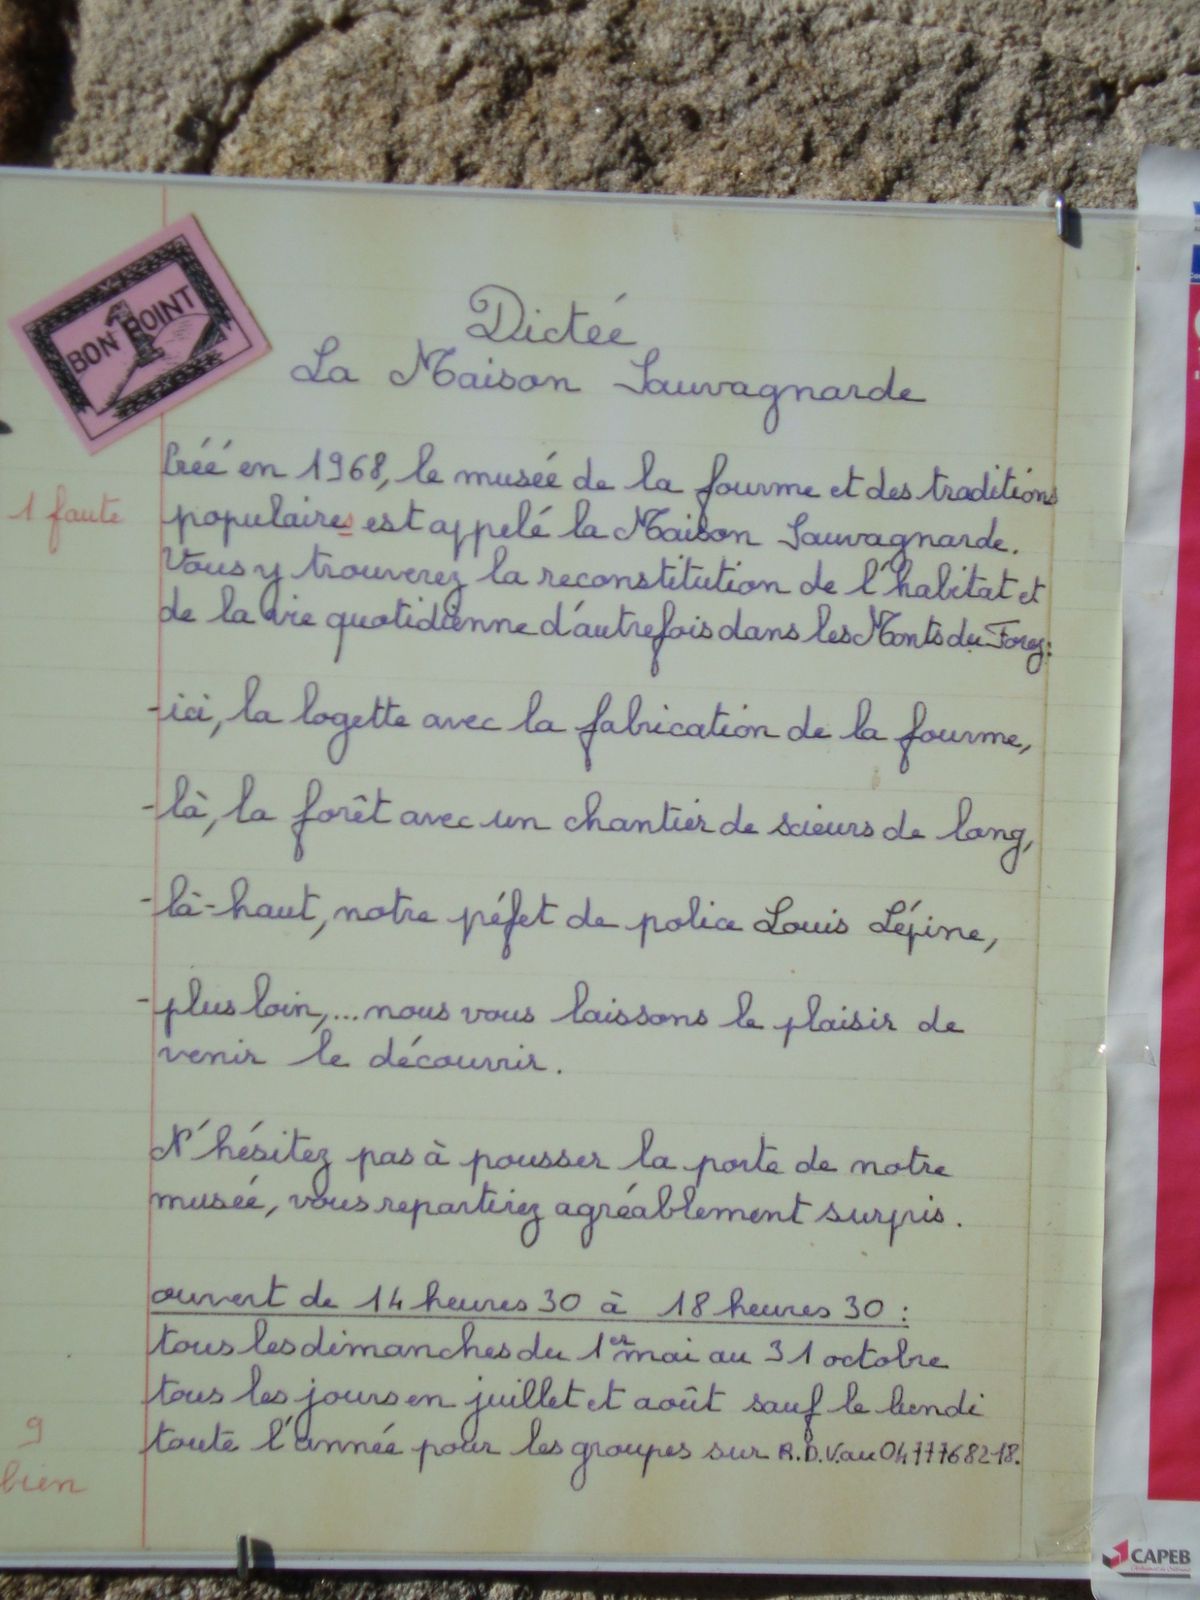 BON POINT
1
Dictée
La Maison Sauvagnarde
Créé en 1968, le musée de la fourme et des traditions
1 faute
populaires est appelé la Maison Sauvagnarde.
Vous y trouverez la reconstitution de l'habitat et
de la vie quotidienne d'autrefois dans les Monts du Forez:
- ici, la logette avec la fabrication de la fourme,
- là, la forêt avec un chantier de scieurs de long,
- là-haut, notre péfet de police Louis Lépine,
- plus loin,... nous vous laissons le plaisir de
venir le découvrir.
N'hésitez pas à pousser la porte de notre
musée, vous repartirez agréablement surpris.
ouvert de 14 heures 30 à 18 heures 30 :
tous les dimanches du 1er mai au 31 octobre
tous les jours en juillet et août sauf le lundi
toute l'année pour les groupes sur R.D.V. au 0477768218.
9
bien
CAPEB